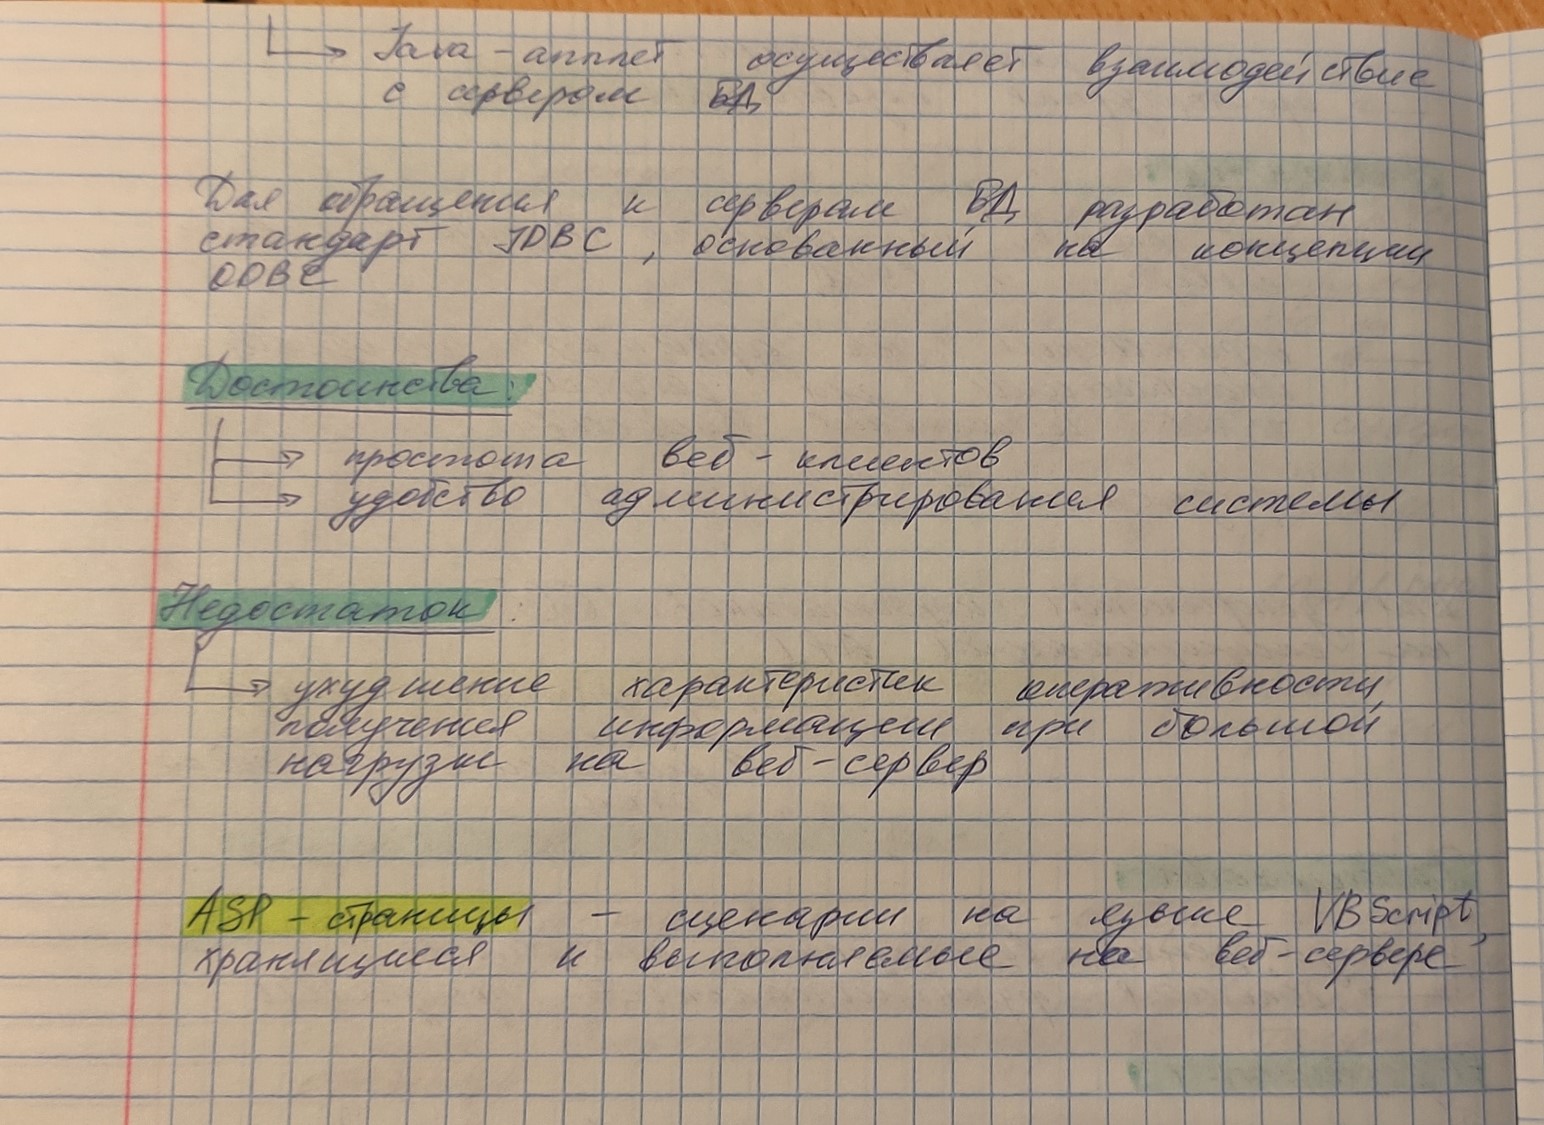 Java-апплет осуществляет взаимодействие
с сервером БД
Для обращения к серверам БД разработан
стандарт JDBC, основанный на концепции
ODBC
Достоинства:
простота веб-клиентов
удобство администрирования системы
Недостаток:
ухудшение характеристик оперативности
получения информации при большой
нагрузке на веб-сервер
ASP-страницы - сценарии на языке VBScript,
хранящиеся и выполняемые на веб-сервере